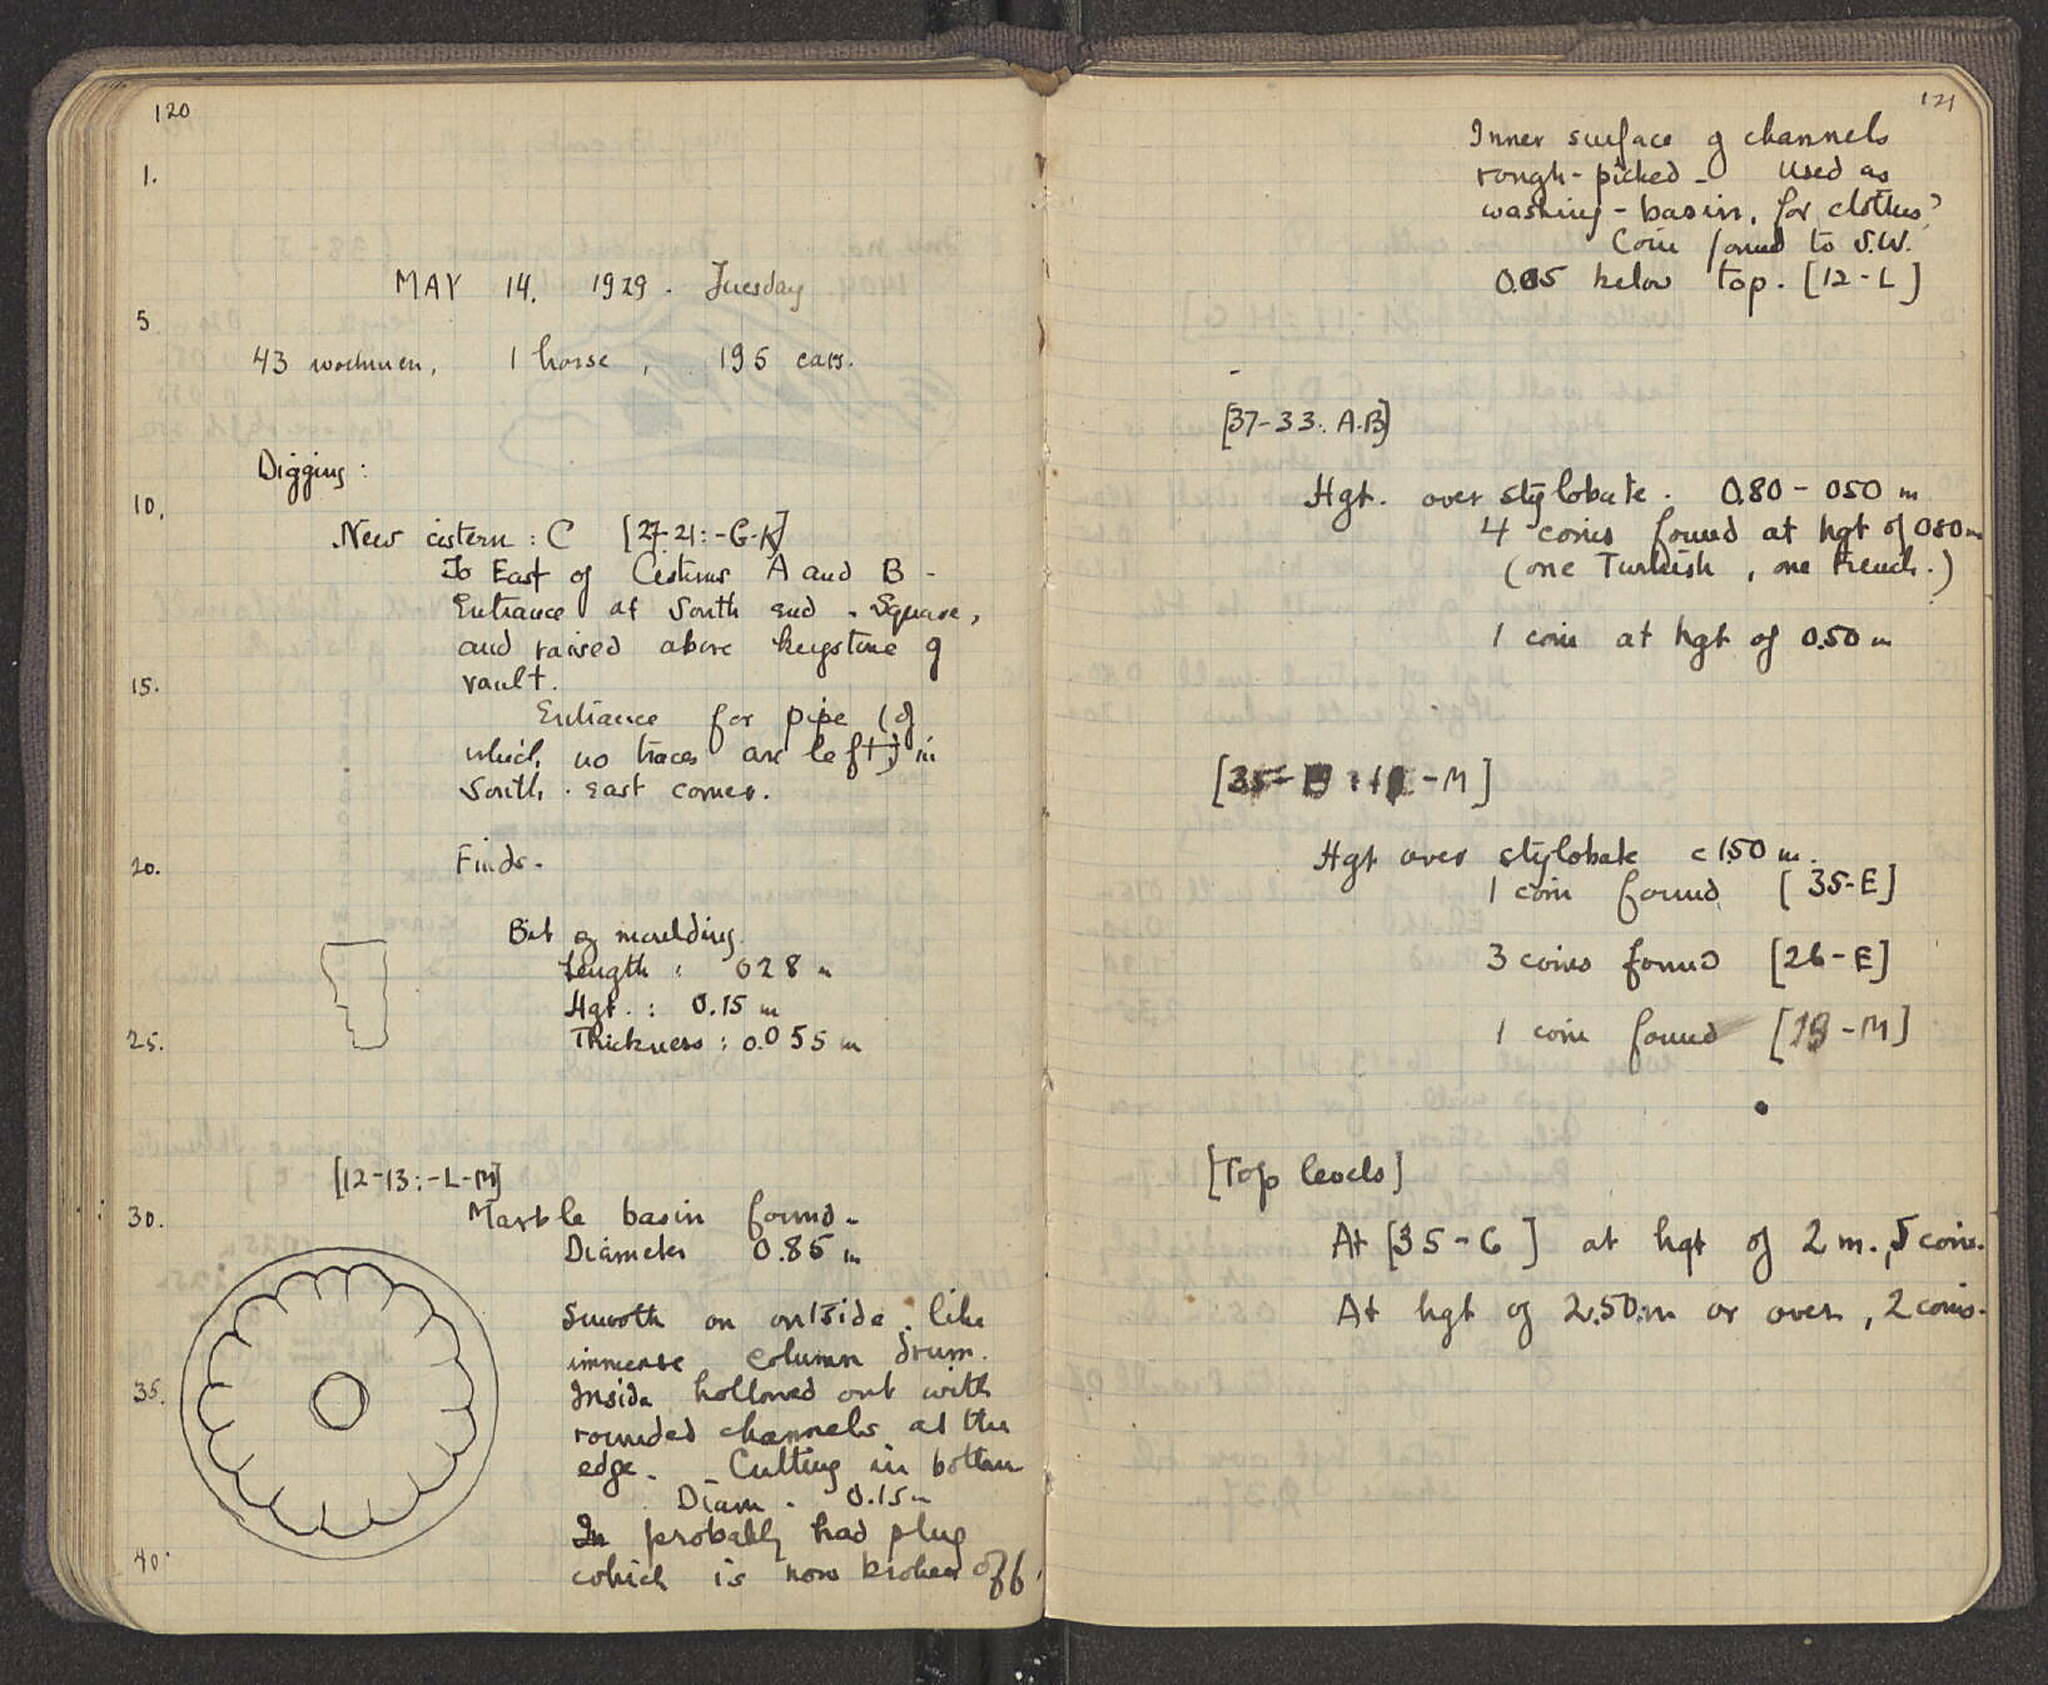 120
1.
MAY 14. 1929. Tuesday
5
43 workmen, 1 horse, 195 cars.
Digging:
10.
New cistern: C [27-21:-G-K]
To East of Cisterns A and B -
Entrance at South end. Square,
and raised above keystone of
15.
vault.
Entrance for pipe (of
which no traces are left) in
South. East corner.
20.
Finds.
Bit of moulding.
Length: 028 m
Hgt.: 0.15 m
25.
Thickness: 0.055 m
[12-13:-L-M]
30.
Marble basin found.
Diameter 0.85 m
Smooth on outside. like
immense column drum.
35.
Inside hollowed out with
rounded channels at the
edge. - Cutting in bottom
Diam. 0.15 m
probably had plug
40.
which is now broken off.
121
Inner surface of channels
rough-picked - Used as
washing-basin, for clothes?
Coin found to S.W.
0.05 below top. [12-L]
[37-33:A.B]
Hgt. over stylobate. 0.80 - 050 m
4 coins found at hgt of 080 m
(one Turkish, one French.)
1 coin at hgt of 0.50 m
-M]
Hgt over stylobate c 1.50 m.
1 coin found [35-E]
3 coins found [26-E]
1 coin found [19-M]
[Top levels]
At [35-C] at hgt of 2 m., 5 coins.
At hgt of 2.50 m or over, 2 coins.